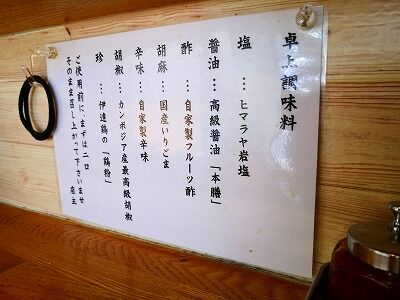 卓上調味料
塩 … ヒマラヤ岩塩
醤油 … 高級醤油「本膳」
酢 … 自家製フルーツ酢
胡麻 … 国産いりごま
辛味 … 自家製辛味
胡椒 … カンボジア産最高級胡椒
珍 … 伊達鶏の「鶏粉」
ご使用前に、まずは一口
そのまま召し上がって下さいませ 店主